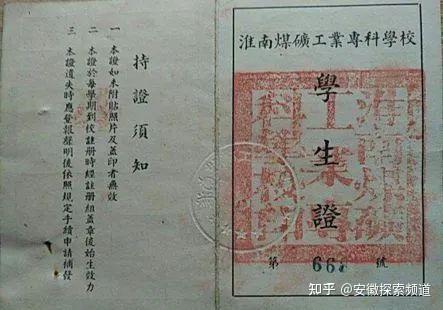 淮南煤礦工業專科學校
學生證
第 668 號
持證須知
一 本證如未附貼照片及蓋印者無效
二 本證於每學期到校註冊時經註冊組蓋章後始生效力
三 本證遺失時應登報聲明後依照規定手續申請補發
知乎 @安徽探索频道